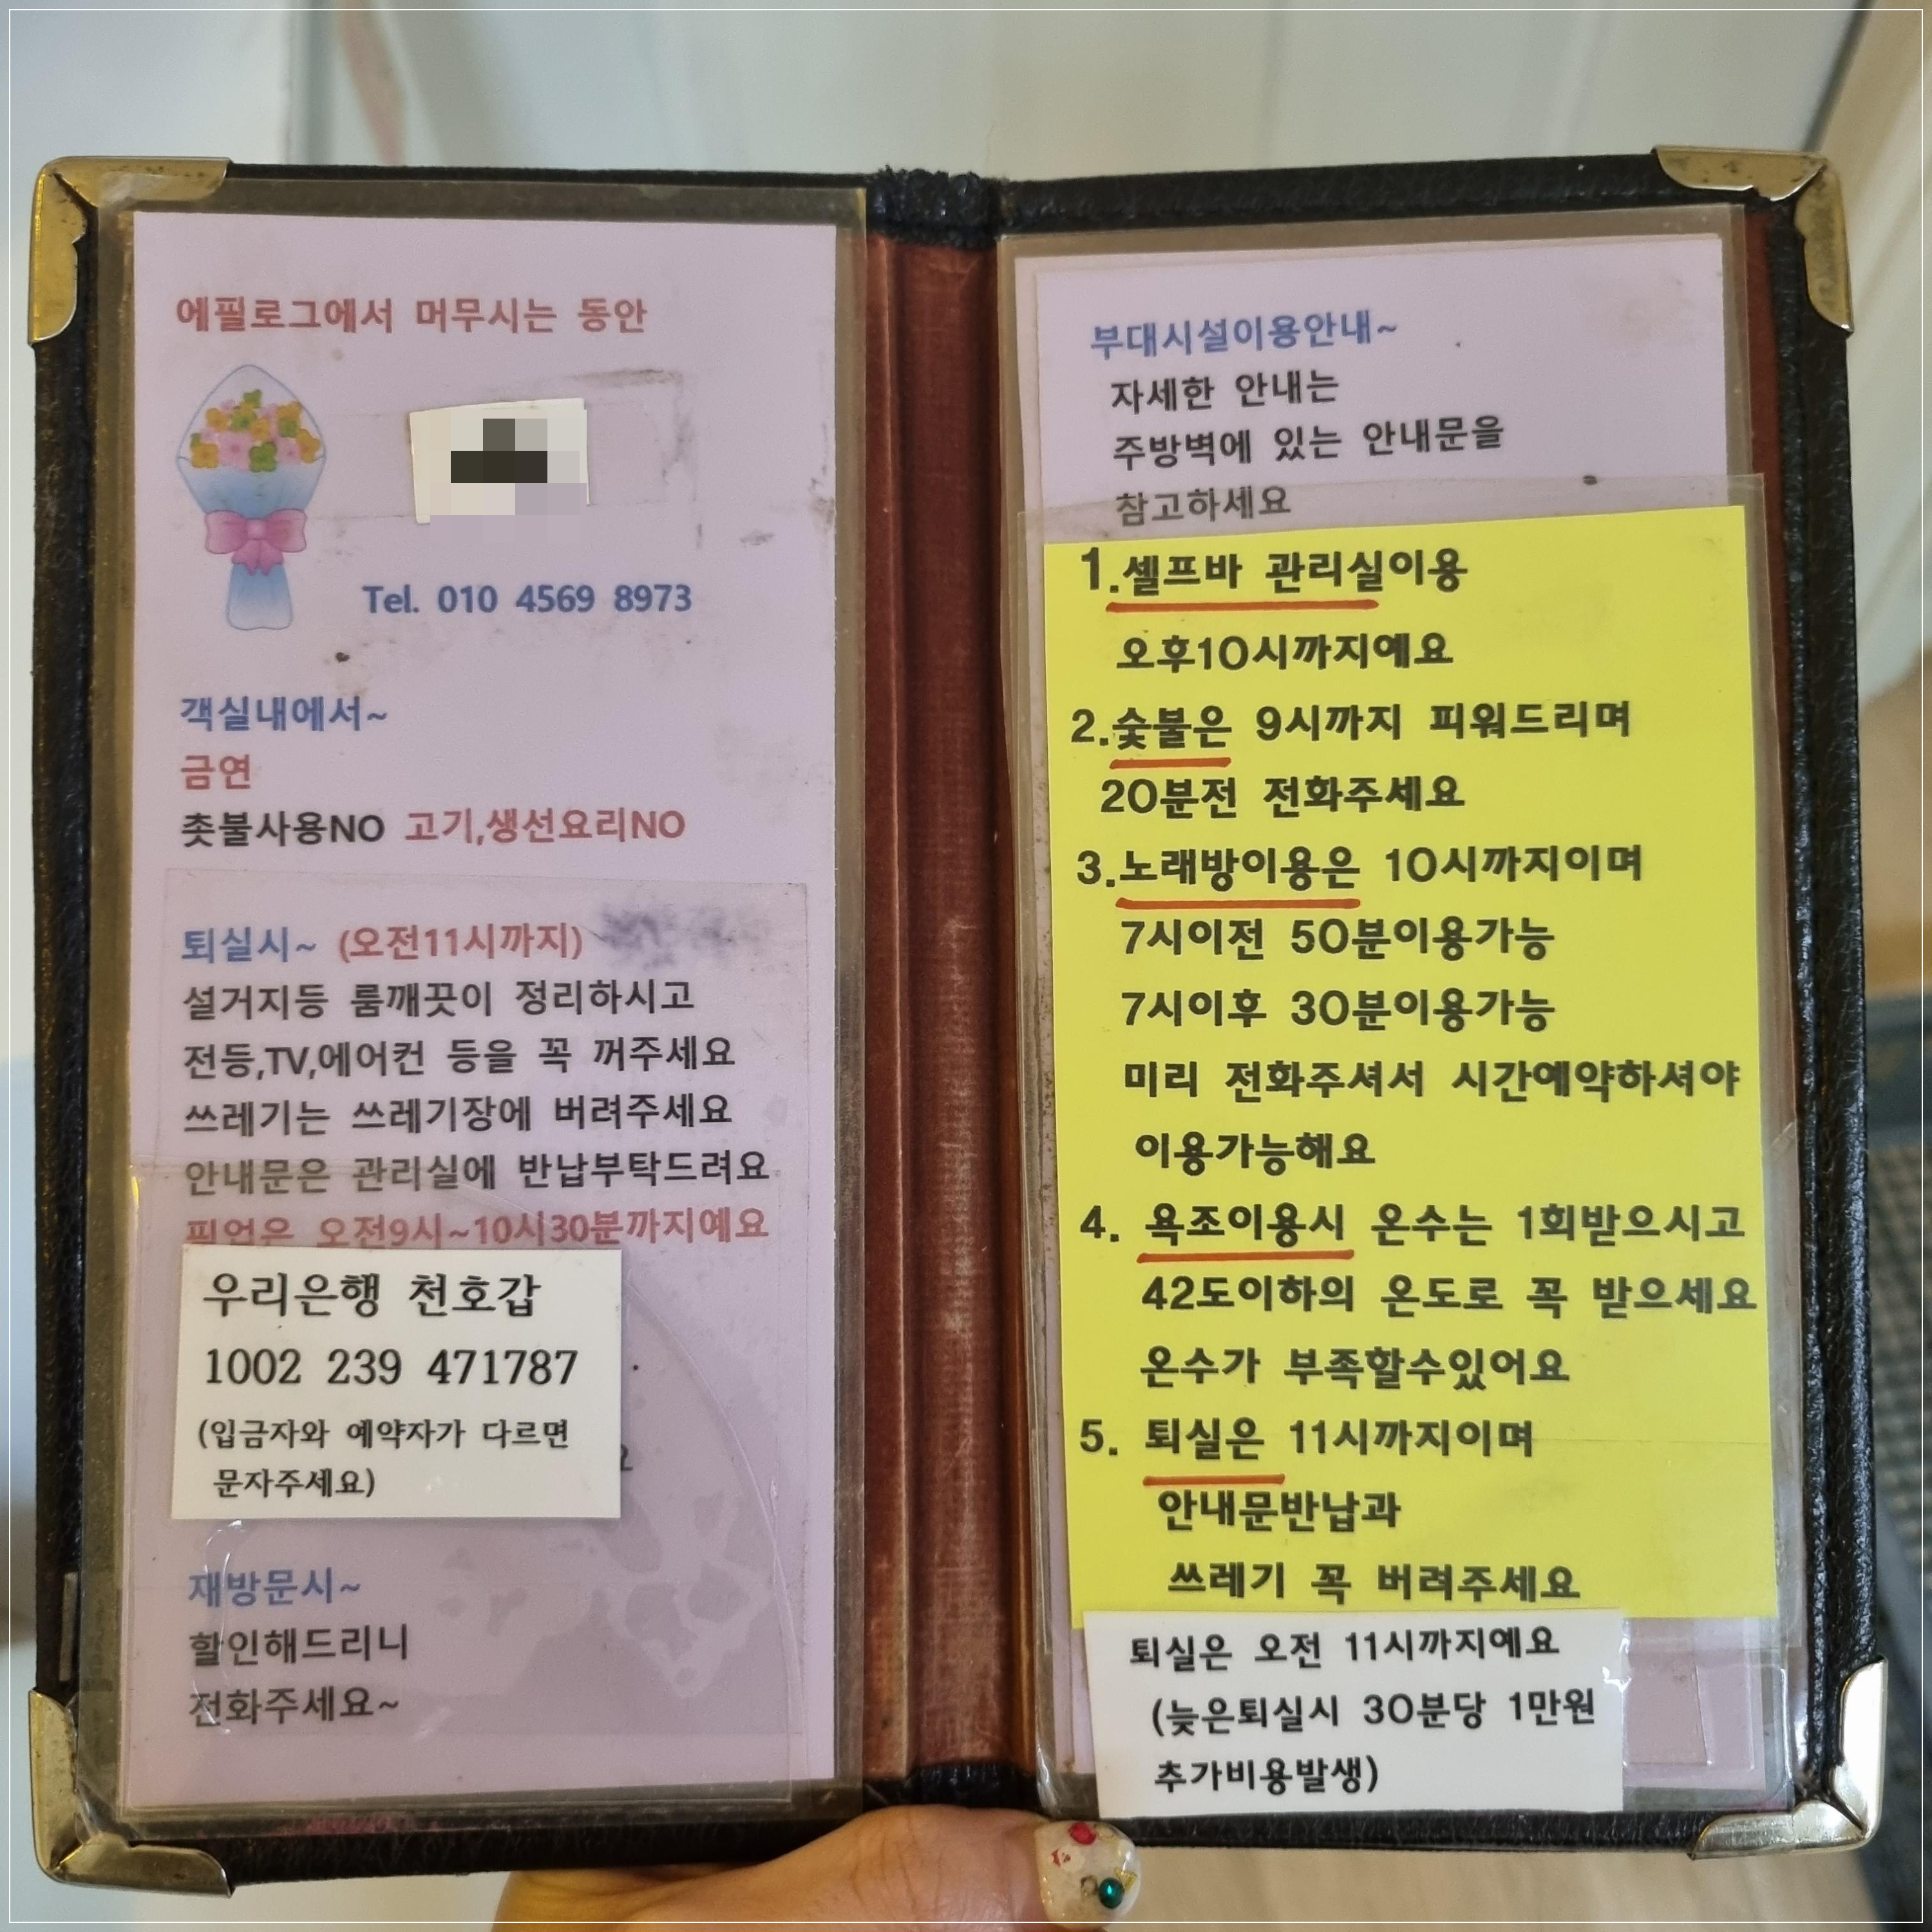 에필로그에서 머무시는 동안
Tel. 010 4569 8973
객실내에서~
금연
촛불사용NO 고기,생선요리NO
퇴실시~ (오전11시까지)
설거지등 룸깨끗이 정리하시고
전등,TV,에어컨 등을 꼭 꺼주세요
쓰레기는 쓰레기장에 버려주세요
안내문은 관리실에 반납부탁드려요
픽업은 오전9시~10시30분까지예요
우리은행 천호갑
1002 239 471787
(입금자와 예약자가 다르면
문자주세요)
재방문시~
할인해드리니
전화주세요~
부대시설이용안내~
자세한 안내는
주방벽에 있는 안내문을
참고하세요
1.셀프바 관리실이용
오후10시까지예요
2.숯불은 9시까지 피워드리며
20분전 전화주세요
3.노래방이용은 10시까지이며
7시이전 50분이용가능
7시이후 30분이용가능
미리 전화주셔서 시간예약하셔야
이용가능해요
4. 욕조이용시 온수는 1회받으시고
42도이하의 온도로 꼭 받으세요
온수가 부족할수있어요
5. 퇴실은 11시까지이며
안내문반납과
쓰레기 꼭 버려주세요
퇴실은 오전 11시까지예요
(늦은퇴실시 30분당 1만원
추가비용발생)